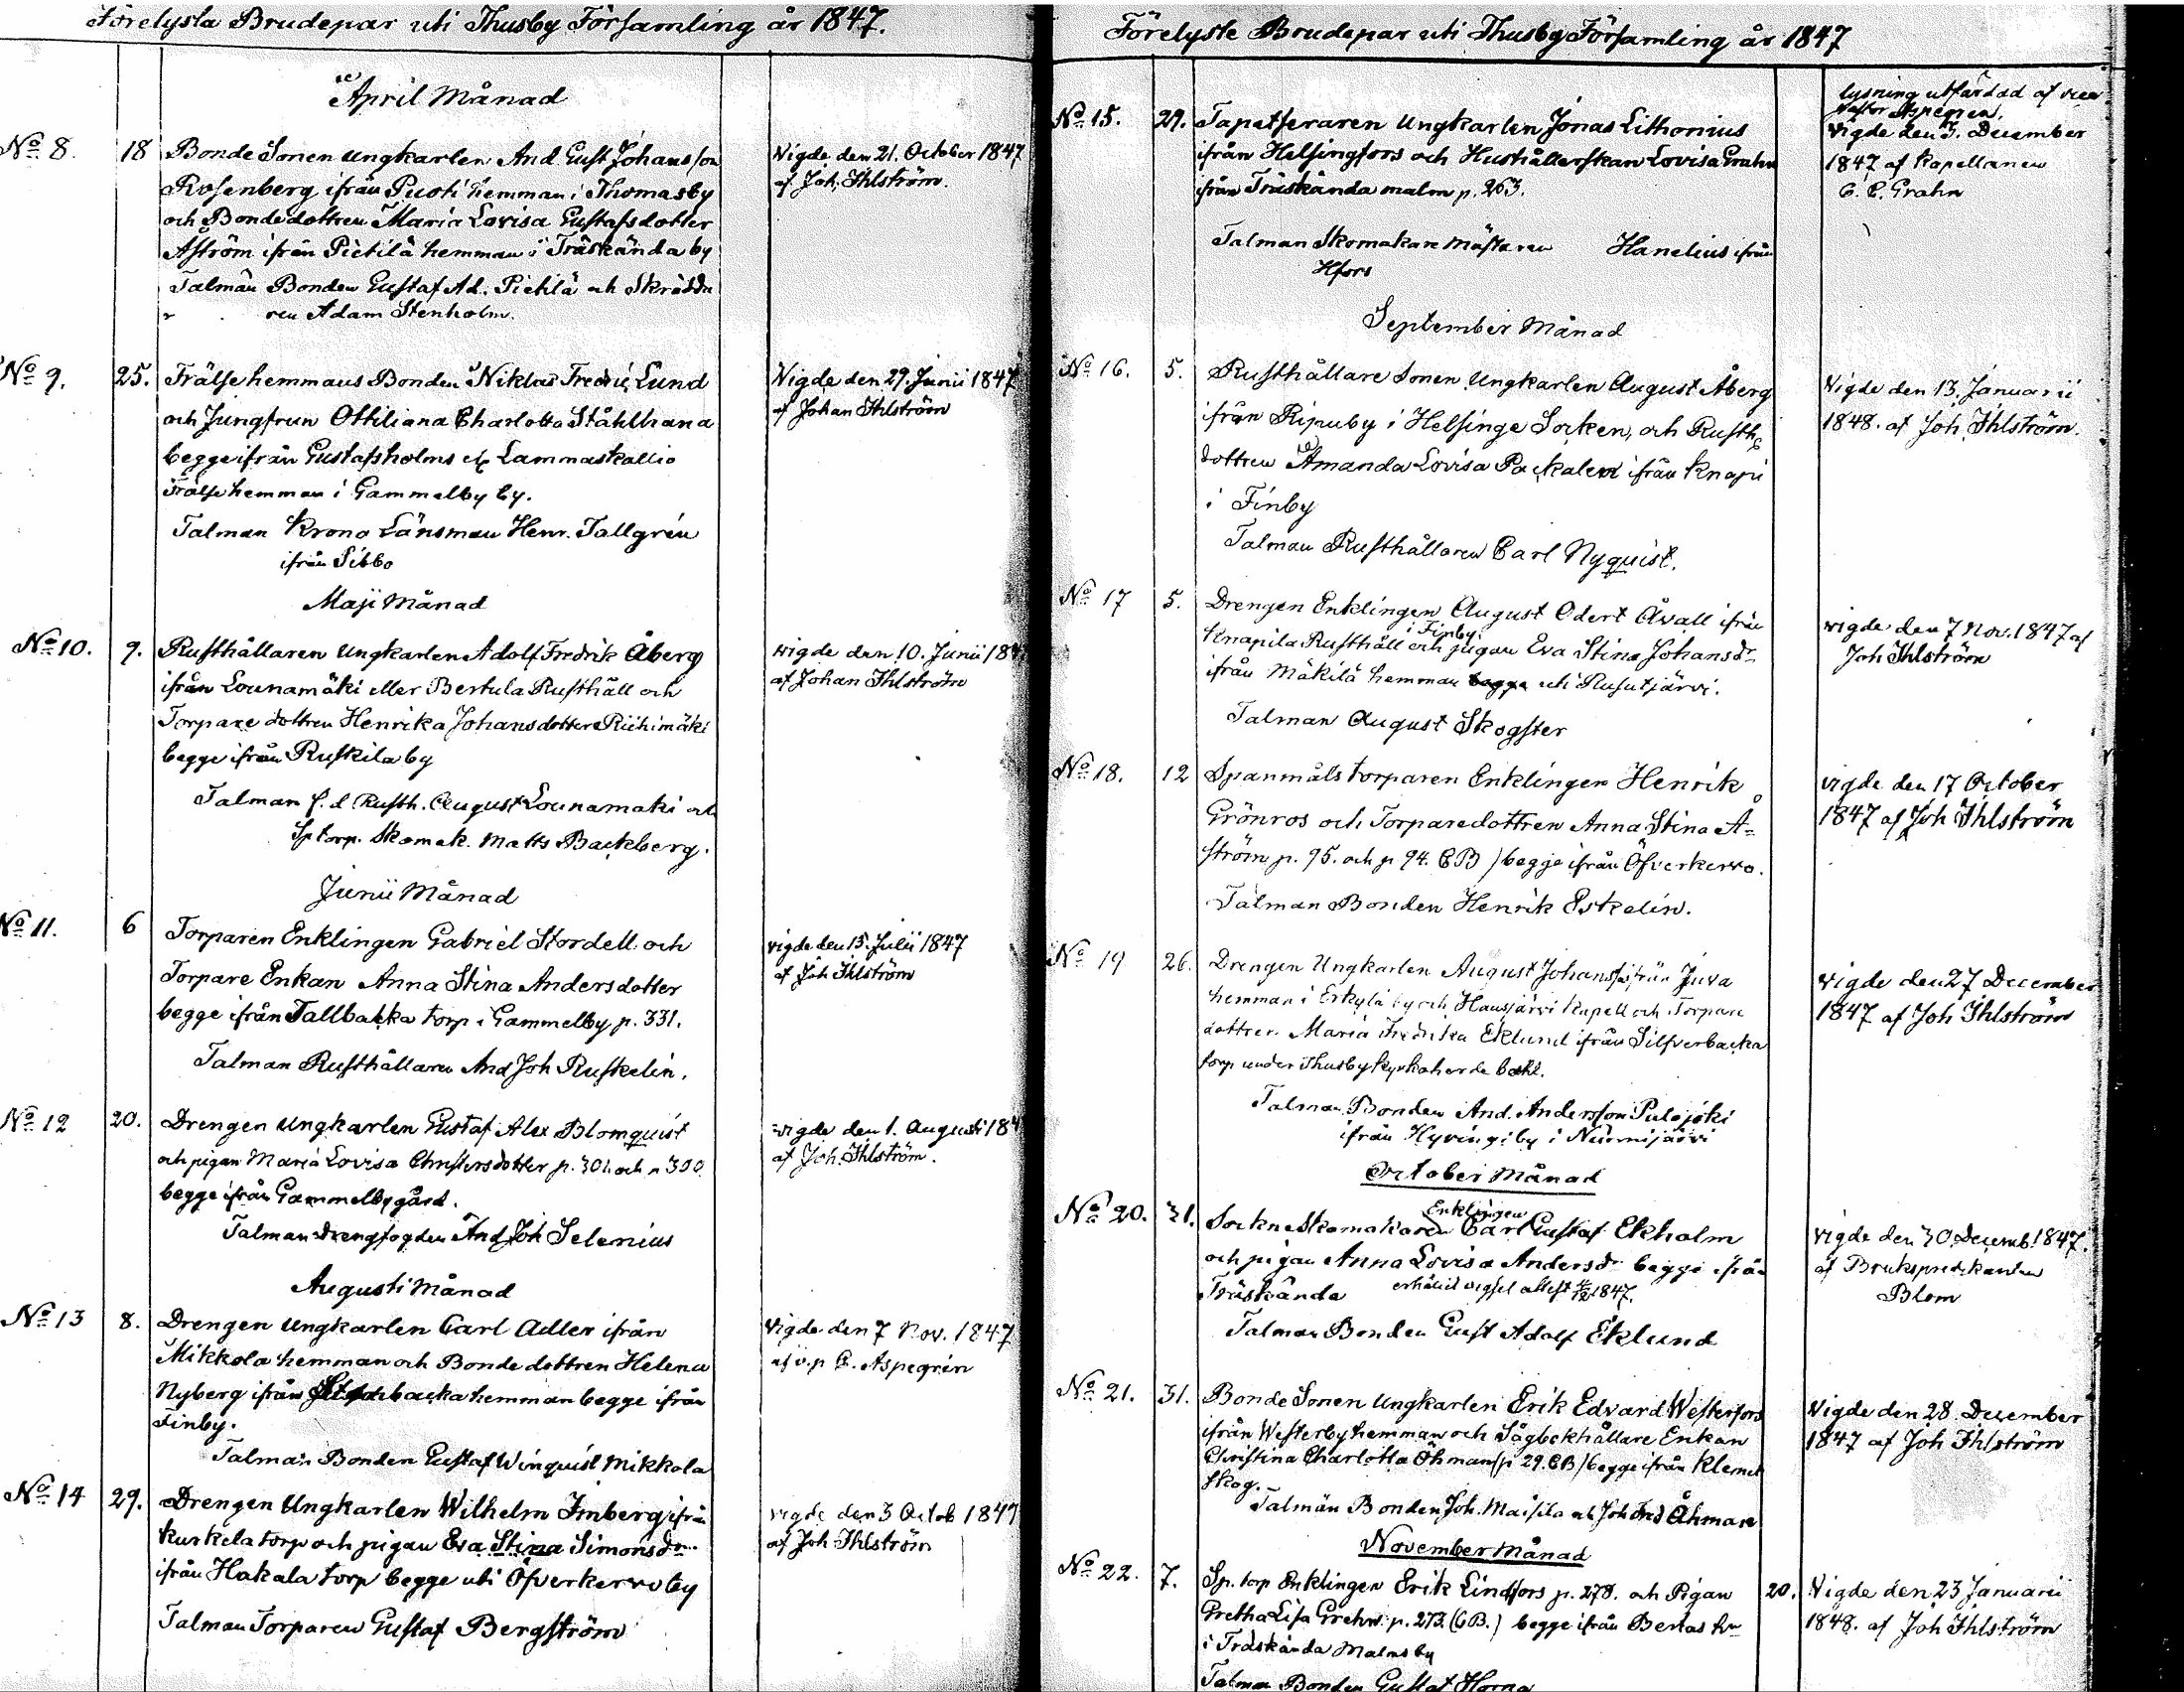 Förelysta Brudepar uti Thusby Församling år 1847.
April Månad
No 8. 18 Bonde Sonen ungkarlen And Gust Johansson
Rosenberg ifrån Puoti hemman i Thomasby
och Bondedottren Maria Lovisa Gustafsdotter
Åström ifrån Pietilä hemman i Träskända by
Talmän Bonden Gustaf Ad. Pietilä och Skrädda
ren Adam Stenholm.
Vigde den 21. October 1847
af Joh. Ihlström.
No 9. 25. Frälsehemmans Bonden Niklas Fredric Lund
och Jungfrun Ottiliana Charlotta Ståhlhana
begge ifrån Gustafsholms el. Lammaskallio
Frälsehemman i Gammelby by.
Talman Krono Länsman Henr. Tallgrén
ifrån Sibbo
Vigde den 29. Junii 1847
af Johan Ihlström
Maji Månad
No 10. 9. Rusthållaren Ungkarlen Adolf Fredrik Åberg
ifrån Lounamäki eller Bertula Rusthåll och
Torpare dottren Henrika Johansdotter Riihimäki
begge ifrån Ruskila by
Talman f. d. Rusth. August Lounamaki och
Sp torp. Skomak. Matts Backberg.
vigde den 10. Junii 184
af Johan Ihlström
Junii Månad
No 11. 6 Torparen Enklingen Gabriel Stordell och
Torpare Enkan Anna Stina Andersdotter
begge ifrån Tallbacka torp i Gammelby p. 331.
Talman Rusthållaren And Joh Ruskelin.
vigde den 15. Julii 1847
af Joh Ihlström
No 12 20. Drengen Ungkarlen Gustaf Alex Blomquist
och pigan Maria Lovisa Christersdotter p. 301 och p 300
begge ifrån Gammelby gård.
Talman Drengfogden And Joh Selenius
vigde den 1. Augusti 184
af Joh. Ihlström.
Augusti Månad
No 13 8. Drengen Ungkarlen Carl Adler ifrån
Mikkola hemman och Bonde dottren Helena
Nyberg ifrån backa hemman begge ifrån
Finby.
Talman Bonden Gustaf Winquist Mikkola
Vigde den 7 Nov. 1847
af v.p C. Aspegrén
No 14 29. Drengen Ungkarlen Wilhelm Imberg ifrån
Kurkela torp och pigan Eva Stina Simonsdr
ifrån Hakala torp begge uti Öfverkervo by
Talman Torparen Gustaf Bergström
vigde den 3 Octob 1847
af Joh Ihlström
Förelyste Brudepar uti Thusby Församling år 1847
No 15. 29. Tapetseraren Ungkarlen Jonas Lithonius
ifrån Helsingfors och Hushållerskan Lovisa Grahn
ifrån Träskända malm p. 263.
Talman Skomakare Mästaren Hanelius ifrån
Hfors
lysning utfärdad af vice
Pastor Aspegren.
vigde den 5. December
1847 af Kapellanen
C. E. Grahn
September Månad
No 16. 5. Rusthållare Sonen Ungkarlen August Åberg
ifrån Ripuby i Helsinge Socken, och Rusth
dottren Amanda Lovisa Packalen ifrån Knapi
i Finby
Talman Rusthållaren Carl Nyquist.
Vigde den 13. Januarii
1848. af Joh. Ihlström.
No 17 5. Drengen Enklingen August Odert Åvall ifrån
i Finby
Knapila Rusthåll och pigan Eva Stina Johansdr
ifrån Mäkilä hemman begge uti Rusutjärvi.
Talman August Skogster
vigde den 7 Nov. 1847 af
Joh Ihlström
No 18. 12 Spanmåls torparen Enklingen Henrik
Grönros och Torparedottren Anna Stina Å-
ström p. 95. och p 94. CB) begge ifrån Öfverkervo.
Talman Bonden Henrik Eskelin.
vigde den 17 October
1847 af Joh Ihlström
No 19 26. Drengen Ungkarlen August Johanss ifrån Juva
hemman i Erkylä by och Hausjärvi Kapell och Torpare
dottren Maria Fredrika Eklund ifrån Silfverbacka
torp under Thusby kyrkoherde bohl.
Talman Bonden And. Andersson Palojoki
ifrån Hyvingi by i Nurmijärvi
vigde den 27 December
1847 af Joh Ihlström
October Månad
Enklingen
No 20. 31. Sockne Skomakaren Carl Gustaf Ekholm
och pigan Anna Lovisa Andersdr begge ifrån
Träskända erhållit vigsel attest 1847.
Talman Bonden Gust Adolf Eklund
vigde den 30 Decemb. 1847.
af Brukspredikanten
Blom
No 21. 31. Bonde Sonen Ungkarlen Erik Edvard Westerfors
ifrån Westerby hemman och Sågbokhållare Enkan
Christina Charlotta Öhman (p 29. CB) begge ifrån Klemet
skog.
Talmän Bonden Joh. Maisila och Joh Fred Öhman
Vigde den 28 December
1847 af Joh Ihlström
November Månad
No 22. 7. Sp. torp Enklingen Erik Lindfors p. 278. och Pigan
Gretha Lisa Grehn p. 273. (CB.) begge ifrån Bertas hn
i Träskända Malmsby
Talman Bonden Gustaf Horna
20. Vigde den 23 Januarii
1848. af Joh Ihlström